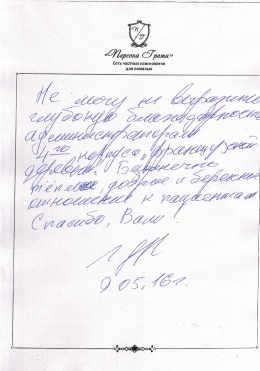 «Персона Грата»
Сеть частных пансионатов
для пожилых
Не могу не выразить
глубокую благодарность
администраторам
4го корпуса „французской
деревни". Бесконечно
тёплое, доброе и бережное
отношение к пациентам
Спасибо, Вам!
9.05.16г.